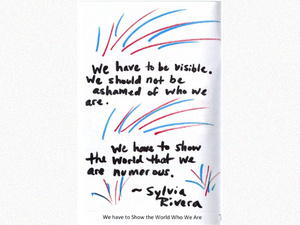 We have to be visible.
We should not be
ashamed of who we
are.
We have to show
the world that we
are numerous.
~ Sylvia
Rivera
We have to Show the World Who We Are